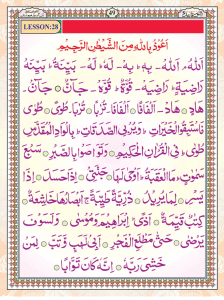 LESSON:28
اَعُوْذُ بِاللّٰهِ مِنَ الشَّيْطٰنِ الرَّجِيْمِ
اَللّٰهُ ۔ اَللّٰهُ ۔ بِهٖ ۔ بِهٖ ۔ لَهٗ ۔ لَهٗ ۔ بَيِّنَةٌ ۔ بَيِّنَهْ
رَاضِيَةٍ ۔ رَاضِيَهْ ۔ قُوَّةٍ ۔ قُوَّهْ ۔ جَآنٌّ ۔ جَآنّْ
هَادٍ ۔ هَادْ ۔ اَلْفَافًا ۔ اَلْفَافَا ۔ تُرٰبًا ۔ تُرٰبَا ۔ طُوًى ۔ طُوٰى
فَاسْتَبِقُوا الْخَيْرٰتِ ۔ وَيُرْبِى الصَّدَقٰتِ ۔ بِالْوَادِ الْمُقَدَّسِ
طُوًى ۔ فِى الْقُرْاٰنِ الْحَكِيْمِ ۔ وَتَوَاصَوْا بِالصَّبْرِ ۔ سَبْعَ
سَمٰوٰتٍ ۔ مَا الْعَقَبَةُ
يَسْرِ ۔ لِمَا يُرِيْدُ ۔ ذُرِّيَّةً طَيِّبَةً ۔ اَبْصَارُهَا خَاشِعَةٌ
كُتُبٌ قَيِّمَةٌ ۔ اِبْرٰهِيْمَ وَمُوْسٰى ۔ وَلَسَوْفَ
يَرْضٰى ۔ حَتّٰى مَطْلَعِ الْفَجْرِ ۔ اَبِىْ لَهَبٍ وَّتَبَّ ۔ لِمَنْ
خَشِىَ رَبَّهٗ ۔ اِنَّهٗ كَانَ تَوَّابًا